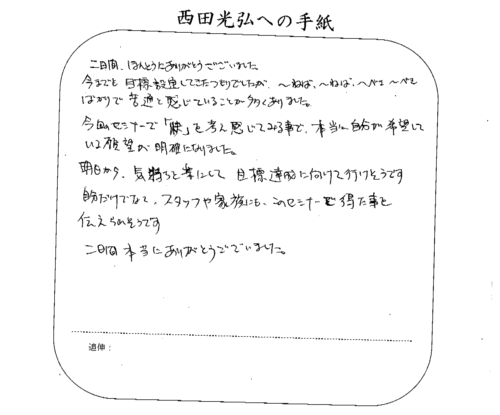 西田光弘への手紙
二日間、ほんとうにありがとうございました
今までも目標設定してきたつもりでしたが、～ねば、～ねば、～べき ～べき
ばかりで苦通と感じていることが多くありました。
今回のセミナーで「 」を考え感じてみる事で、本当に自分が希望して
いる願望が明確になりました。
明日から、気持ちを楽にして 目標達成に向けて行けそうです
自分だけでなく、スタッフや家族にも、このセミナーで得た事を
伝えられそうです
二日間 本当にありがとうございました。
追伸：